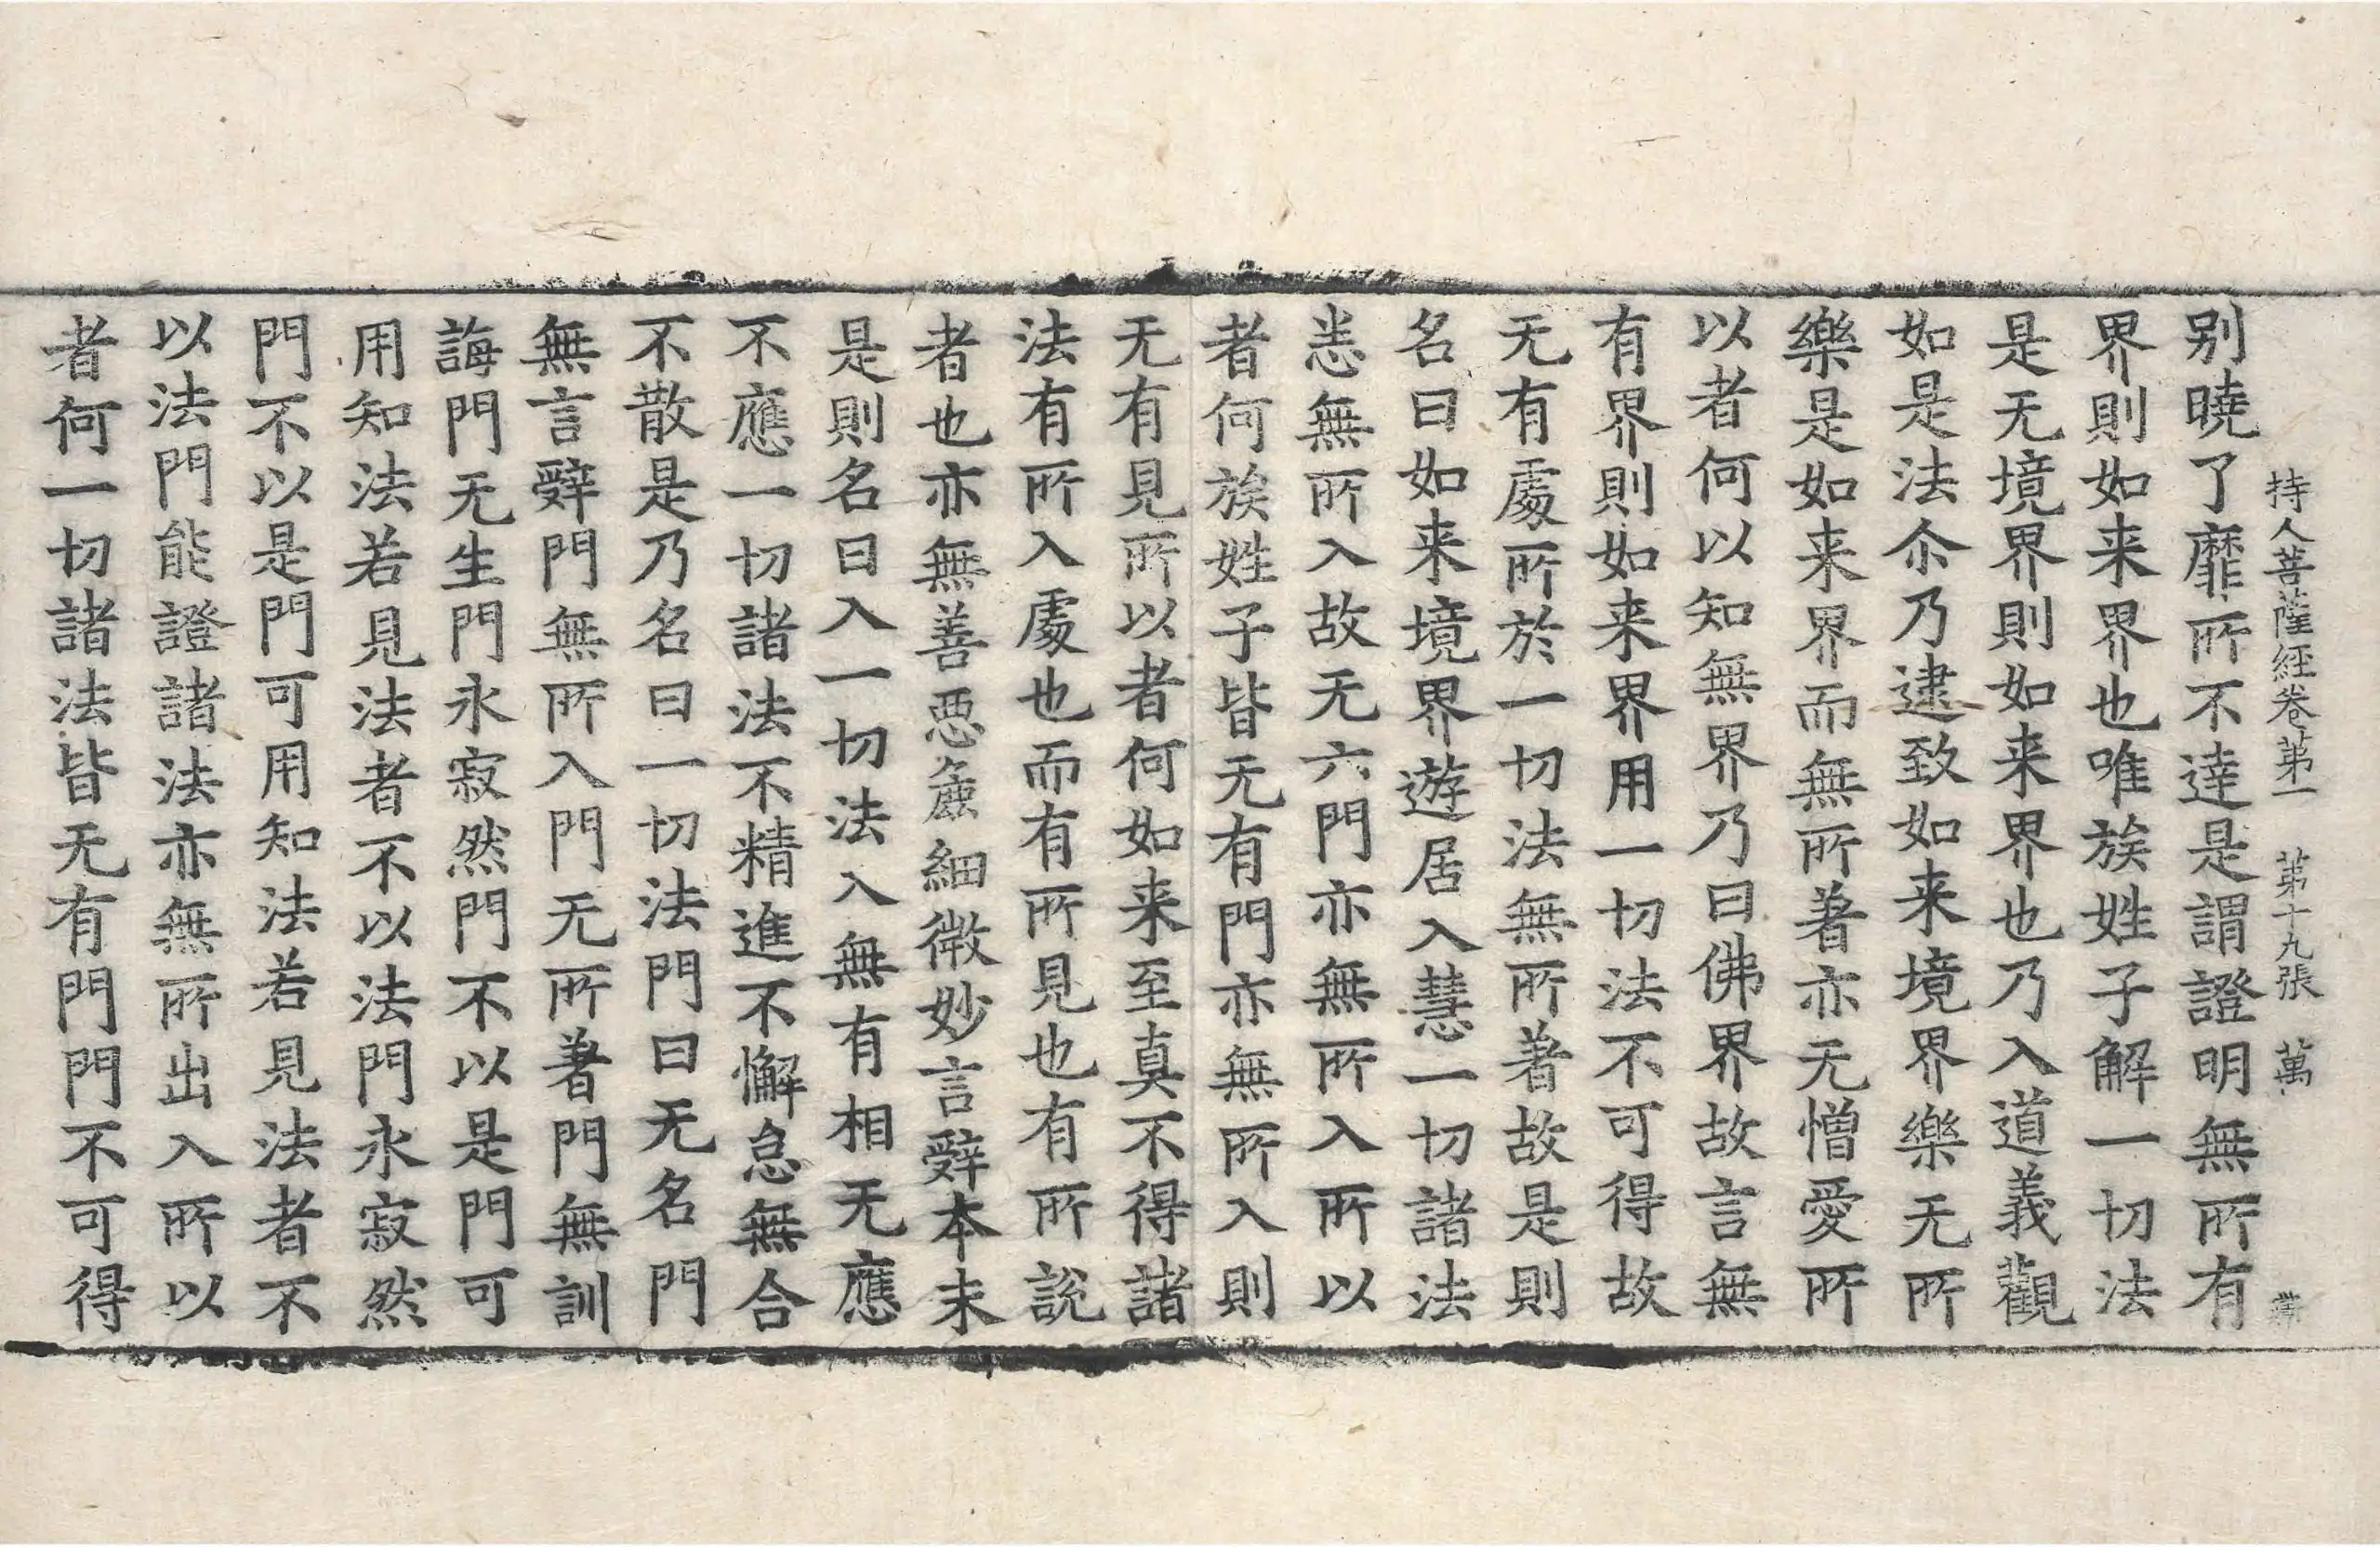 持人菩薩経卷第一　第十九張　萬
别曉了靡所不達是謂證明無所有
界則如来界也唯族姓子解一切法
是无境界則如来界也乃入道義觀
如是法尒乃逮致如来境界樂无所
樂是如来界而無所著亦无憎愛所
以者何以知無界乃曰佛界故言無
有界則如来界用一切法不可得故
无有處所於一切法無所著故是則
名曰如来境界遊居入慧一切諸法
悉無所入故无六門亦無所入所以
者何族姓子皆无有門亦無所入則
无有見所以者何如来至真不得諸
法有所入處也而有所見也有所說
者也亦無善惡麁細微妙言辭本末
是則名曰入一切法入無有相无應
不應一切諸法不精進不懈怠無合
不散是乃名曰一切法門曰无名門
無言辭門無所入門无所著門無訓
誨門无生門永寂然門不以是門可
用知法若見法者不以法門永寂然
門不以是門可用知法若見法者不
以法門能證諸法亦無所出入所以
者何一切諸法皆无有門門不可得